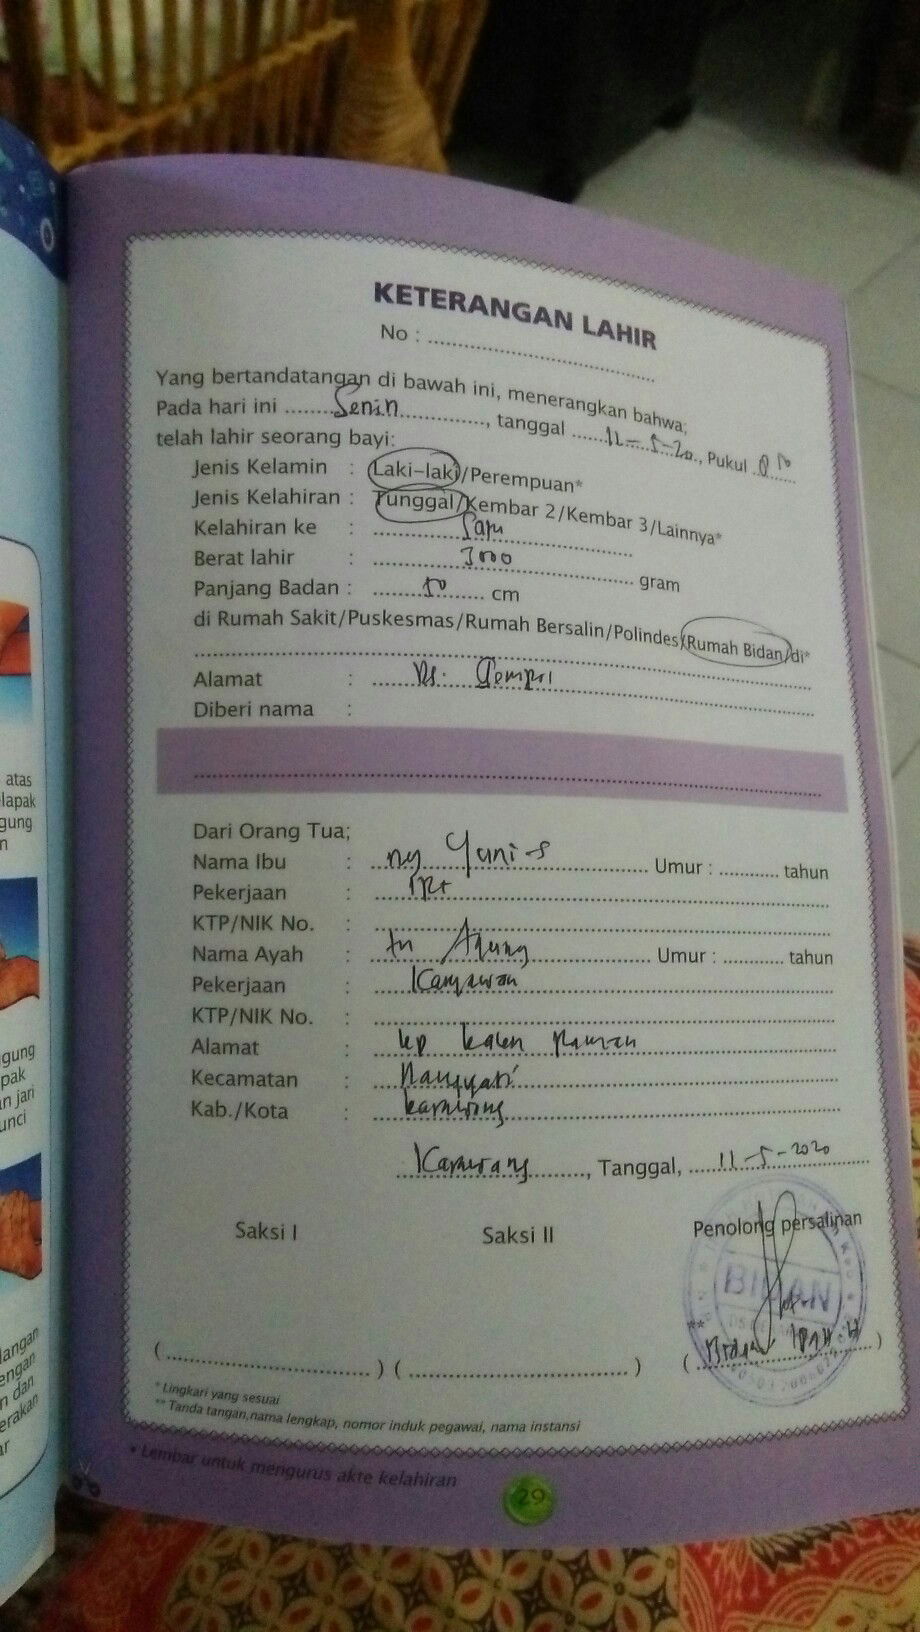 KETERANGAN LAHIR
No : ..............................
Yang bertandatangan di bawah ini, menerangkan bahwa;
Pada hari ini ........ Senin ................, tanggal ...... 11-5-20 ......, Pukul
telah lahir seorang bayi:
Jenis Kelamin : Laki-laki/Perempuan*
Jenis Kelahiran : Tunggal/Kembar 2/Kembar 3/Lainnya*
Kelahiran ke : Satu
Berat lahir : 3000 gram
Panjang Badan : 50 cm
di Rumah Sakit/Puskesmas/Rumah Bersalin/Polindes/Rumah Bidan/di*
Alamat : Ds.
Diberi nama :
Dari Orang Tua;
Nama Ibu : ny Yuni-s Umur : ............ tahun
Pekerjaan : IRT
KTP/NIK No. :
Nama Ayah : tn Agung Umur : ............ tahun
Pekerjaan : Karyawan
KTP/NIK No. :
Alamat : kp kalen
Kecamatan :
Kab./Kota : karawang
Karawang, Tanggal, 11-5-2020
Saksi I Saksi II Penolong persalinan
BIDAN
** Bidan
(..............................) (..............................) (..............................)
* Lingkari yang sesuai
** Tanda tangan,nama lengkap, nomor induk pegawai, nama instansi
• Lembar untuk mengurus akte kelahiran
29
atas
lapak
gung
n
gung
pak
n jari
unci
langan
engan
n dan
erakan
ar